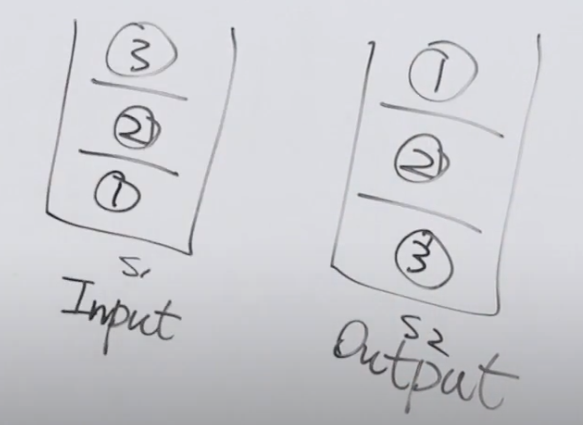 3
2
1
S1
Input
1
2
3
S2
Output